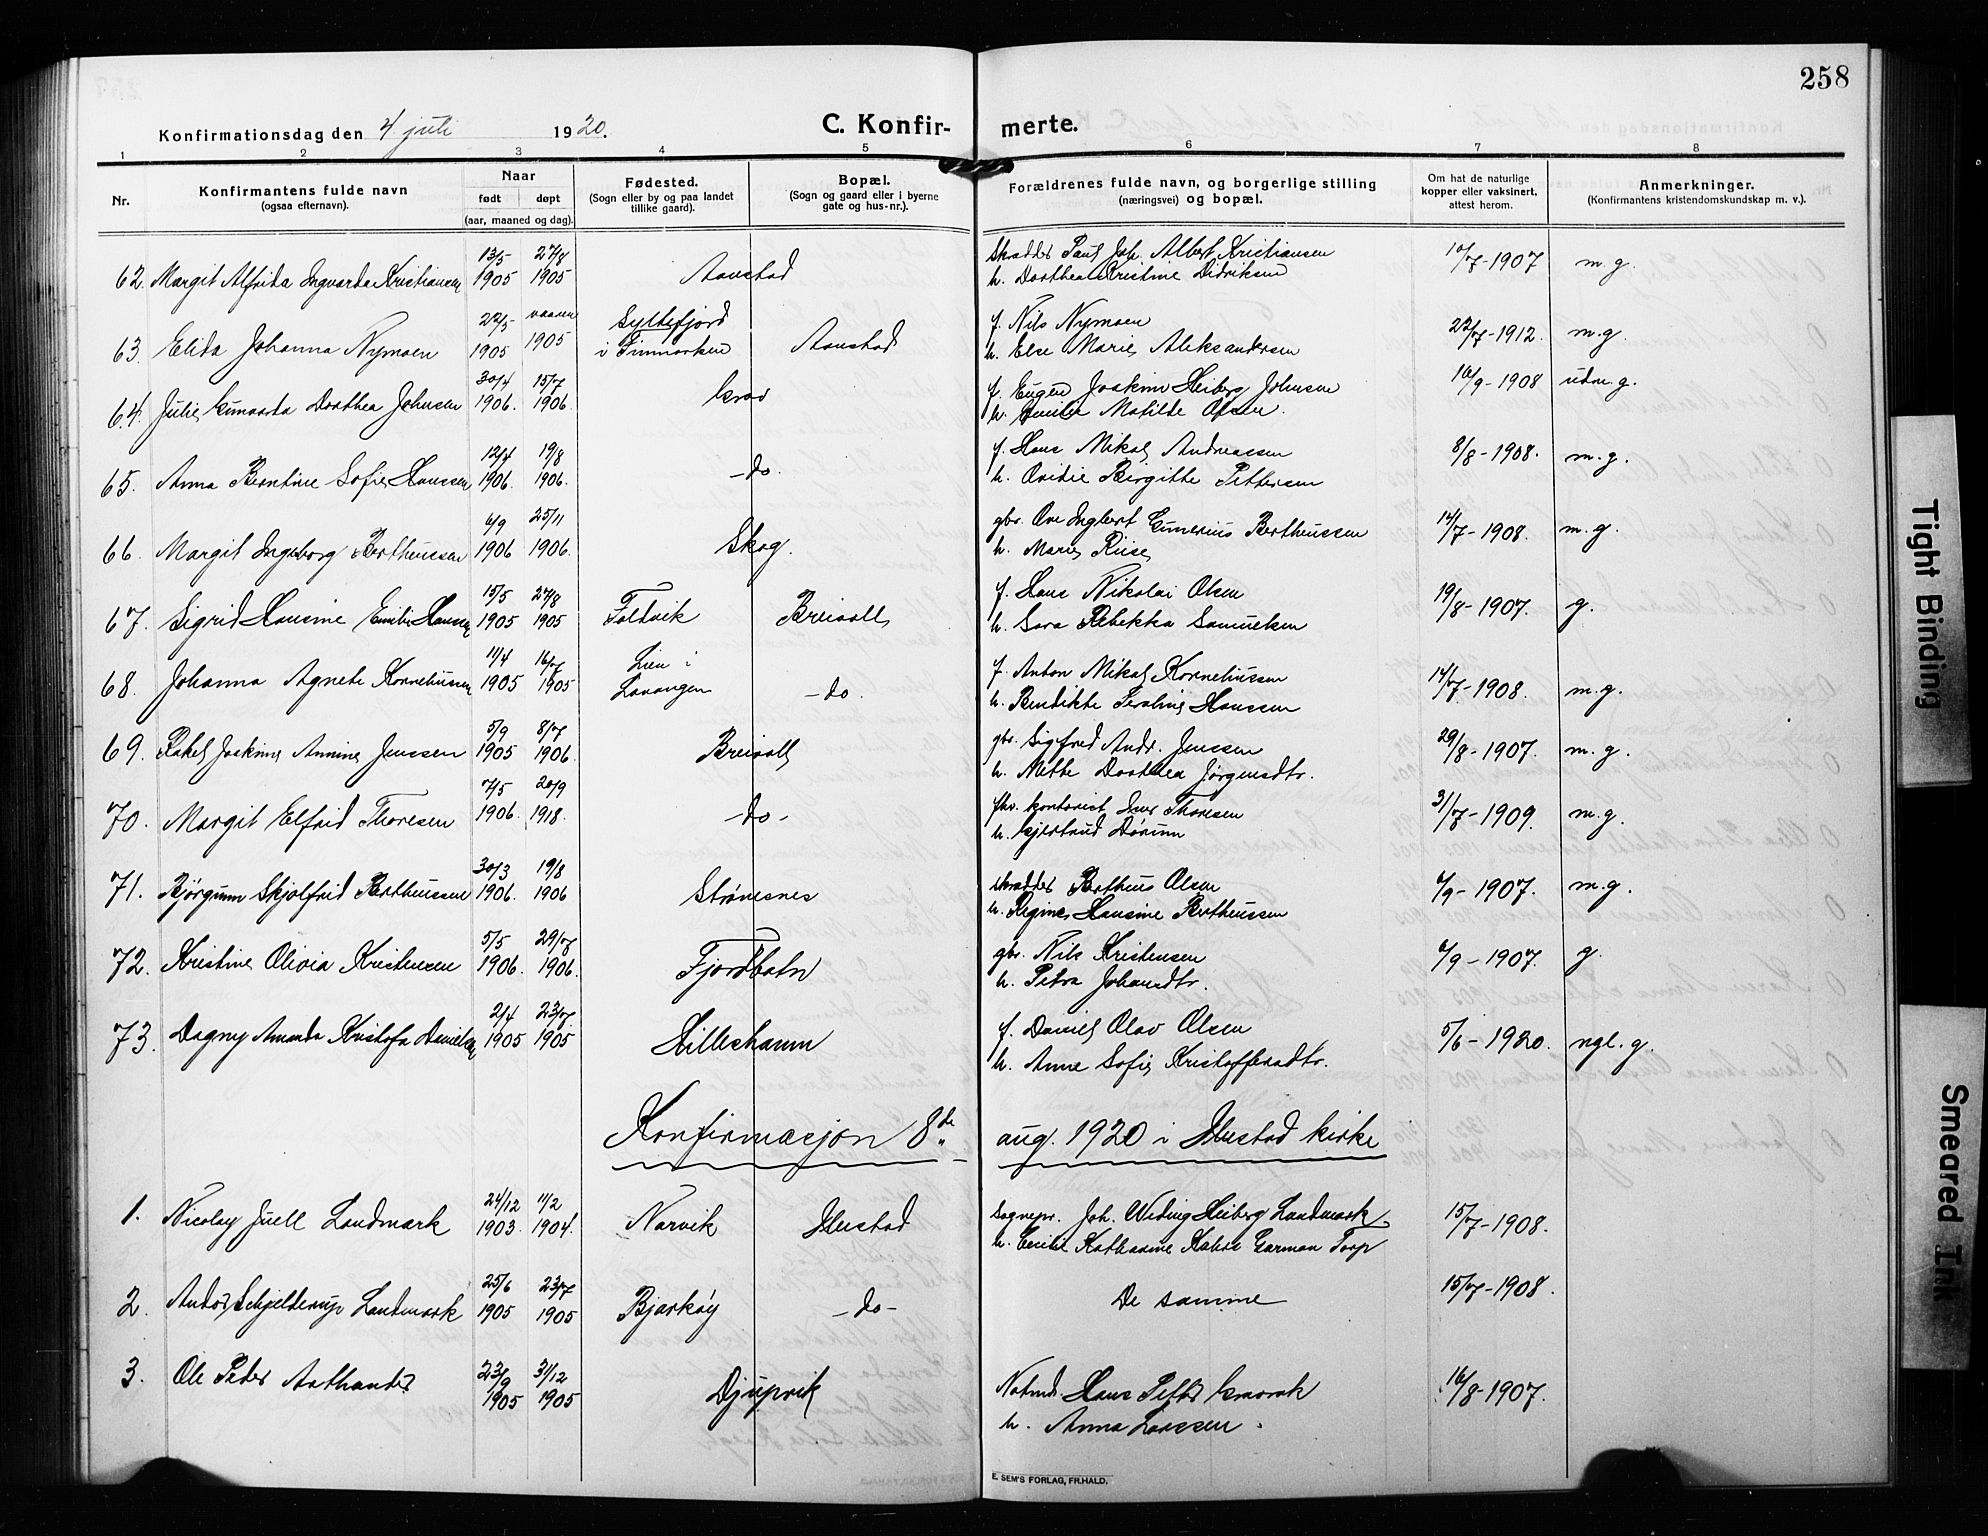 258
Konfirmationsdag den 4 juli 1920.
C. Konfirmerte.
1 2 3 4 5 6 7 8
Nr.
Konfirmantens fulde navn
(ogsaa efternavn).
Naar
født døpt
(aar, maaned og dag).
Fødested.
(Sogn eller by og paa landet
tillike gaard).
Bopæl.
(Sogn og gaard eller i byerne
gate og hus-nr.).
Forældrenes fulde navn, og borgerlige stilling
(næringsvei) og bopæl.
Om hat de naturlige
kopper eller vaksinert,
attest herom.
Anmerkninger.
(Konfirmantens kristendomskundskap m. v.).
62. Margit Alfrida Ingvarda Kristiansen 13/5 1905 27/8 1905 Aanstad Skrædder Paul Joh. Albert Kristiansen 10/7-1907 m.g.
h. Dorthea Kristine Didriksen
63. Elida Johanna Nymoen 22/5 1905 vaaren 1905 Syltefjord i Finmarken Aanstad f. Nils Nymoen 22/7-1912. m.g.
h. Else Marie Aleksandersen
64. Julie Gunarda Dorthea Johnsen 30/4 1906. 15/7 1906. f. Eugen Joakim Heiberg Johnsen 16/9-1908 udm.g.
h. Emilie Matilde Olsen.
65. Anna Berntine Sofie Hansen 12/4 1906. 19/8 1906. -do. f. Hans Mikal Andreassen 8/8-1908. m.g.
h. Ovidie Birgitte Pettersen
66. Margit Ingeborg Bertheussen 6/9 1906 25/11 1906. Skog. gbr. Ove Ingbert Gunerius Bertheussen 14/7-1908. m.g.
h. Marie Riise
67. Sigrid Hansine Emilie Hansen 15/5 1905 27/8 1905 Foldvik Breivoll f. Hans Nikolai Olsen 19/8-1907. g.
h. Sara Rebekka Samuelsen
68. Johanna Agnete Korneliussen 11/4 1905 16/7 1905 Lien i Lavangen -do. f. Anton Mikal Korneliussen 14/7-1908. m.g.
h. Bendikte Seraline Hanssen
69. Rakel Joakime Annine Jenssen 5/9 1905 8/7 1906. Breivoll gbr. Sigfred Andr. Jenssen 29/8-1907. m.g.
h. Mette Dorthea Jørgensdtr.
70. Margit Elfrid Thoresen 7/5 1906. 20/9 1918. -do- fhv. kontorist Iver Thoresen 31/7-1909. m.g.
h. Gjertrud Dørum
71. Bjørgunn Skjolfrid Bertheussen 30/3 1906. 19/8 1906 Strømesnes skrædder Bertheus Olsen 6/9-1907. m.g.
h. Regine Hansine Bertheussen
72. Kristine Olivia Kristensen 5/5 1906. 29/7 1906. Fjordbotn gbr. Nils Kristensen 6/9-1907. g.
h. Petra Johansdtr.
73. Dagny Amanda Kristofa Danielsen 2/4 1905 23/7 1905 Hilleshamn f. Daniel Olav Olsen 5/6-1920. ngl.g.
h. Anne Sofie Kristoffersdtr.
Konfirmasjon 8de aug. 1920 i Ibestad kirke
1. Nicolay Juell Landmark 24/12 1903. 11/2 1904. Narvik Ibestad Sognepr. Joh. Widing Heiberg Landmark 15/7-1908.
h. Cecilie Katharine Garman Torp
2. Schjelderup Landmark 25/6 1905 23/7 1905 Bjarkøy -do- De samme 15/7-1908.
3. Ole Peder 23/9 1905 31/12 1905 Djupvik Hans Petter 16/8-1907.
h. Anna Larssen.
E. SEM'S FORLAG, FR.HALD.
Tight Binding
Smeared Ink